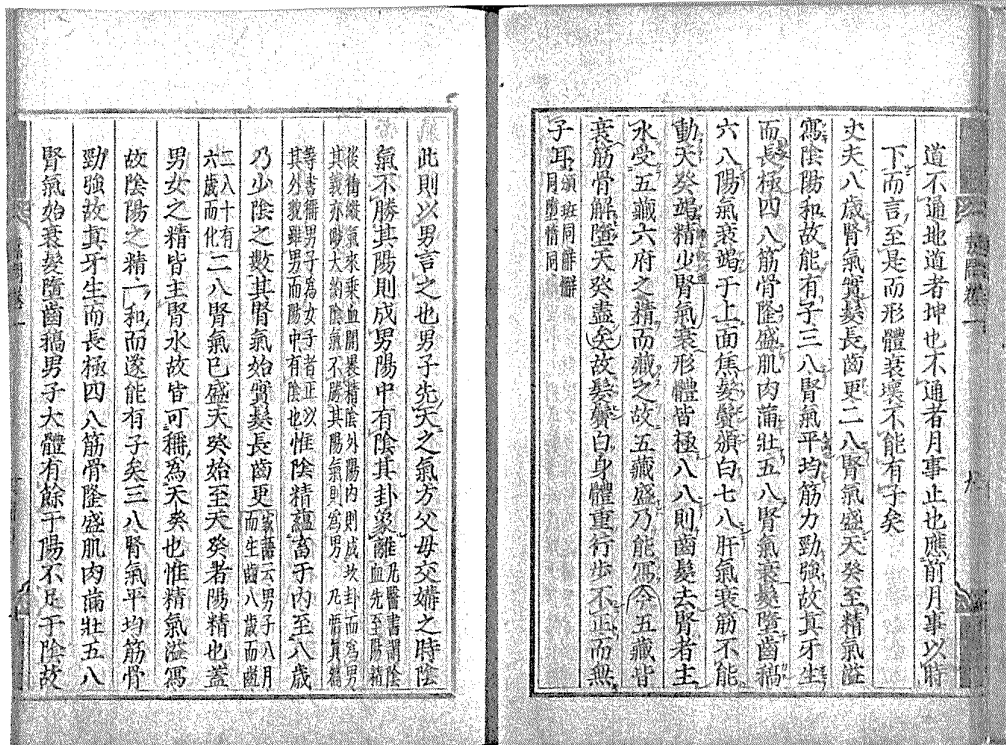 道不通地道者坤也不通者月事止也應前月事以時
下而言至是而形體衰壞不能有子矣
丈夫八歲腎氣實髮長齒更二八腎氣盛天癸至精氣溢
寫陰陽和故能有子三八腎氣平均筋力勁強故真牙生
而長極四八筋骨隆盛肌肉滿壯五八腎氣衰髮墮齒槁
六八陽氣衰竭于上面焦髮鬢頒白七八肝氣衰筋不能
動天癸竭精少腎氣衰形體皆極八八則齒髮去腎者主
水受五藏六府之精而藏之故五藏盛乃能寫今五藏皆
衰筋骨解墮天癸盡矣故髮鬢白身體重行步不正而無
子耳頒班同觧懈
同墮惰同
此則以男言之也男子先天之氣方父母交媾之時陰
氣不勝其陽則成男陽中有陰其卦象離乃醫書謂陰
血先至陽精
後衝縱氣來乘血開裹精陰外陽內則成坎卦而為男
其義亦陽大謂陰氣不勝其陽氣則為男乃悟真篇
等書稱男子為女子者正以
其外貌雖男而陽中有陰也惟陰精蘊畜于內至八歲
乃少陰之數其腎氣始實髮長齒更家語云男子八月
而生齒八歲而齔
二八十有
六歲而化二八腎氣已盛天癸始至天癸者陽精也蓋
男女之精皆主腎水故皆可稱為天癸也惟精氣溢寫
故陰陽之精一和而遂能有子矣三八腎氣平均筋骨
勁強故真牙生而長極四八筋骨隆盛肌肉滿壯五八
腎氣始衰髮墮齒槁男子大體有餘于陽不足于陰故